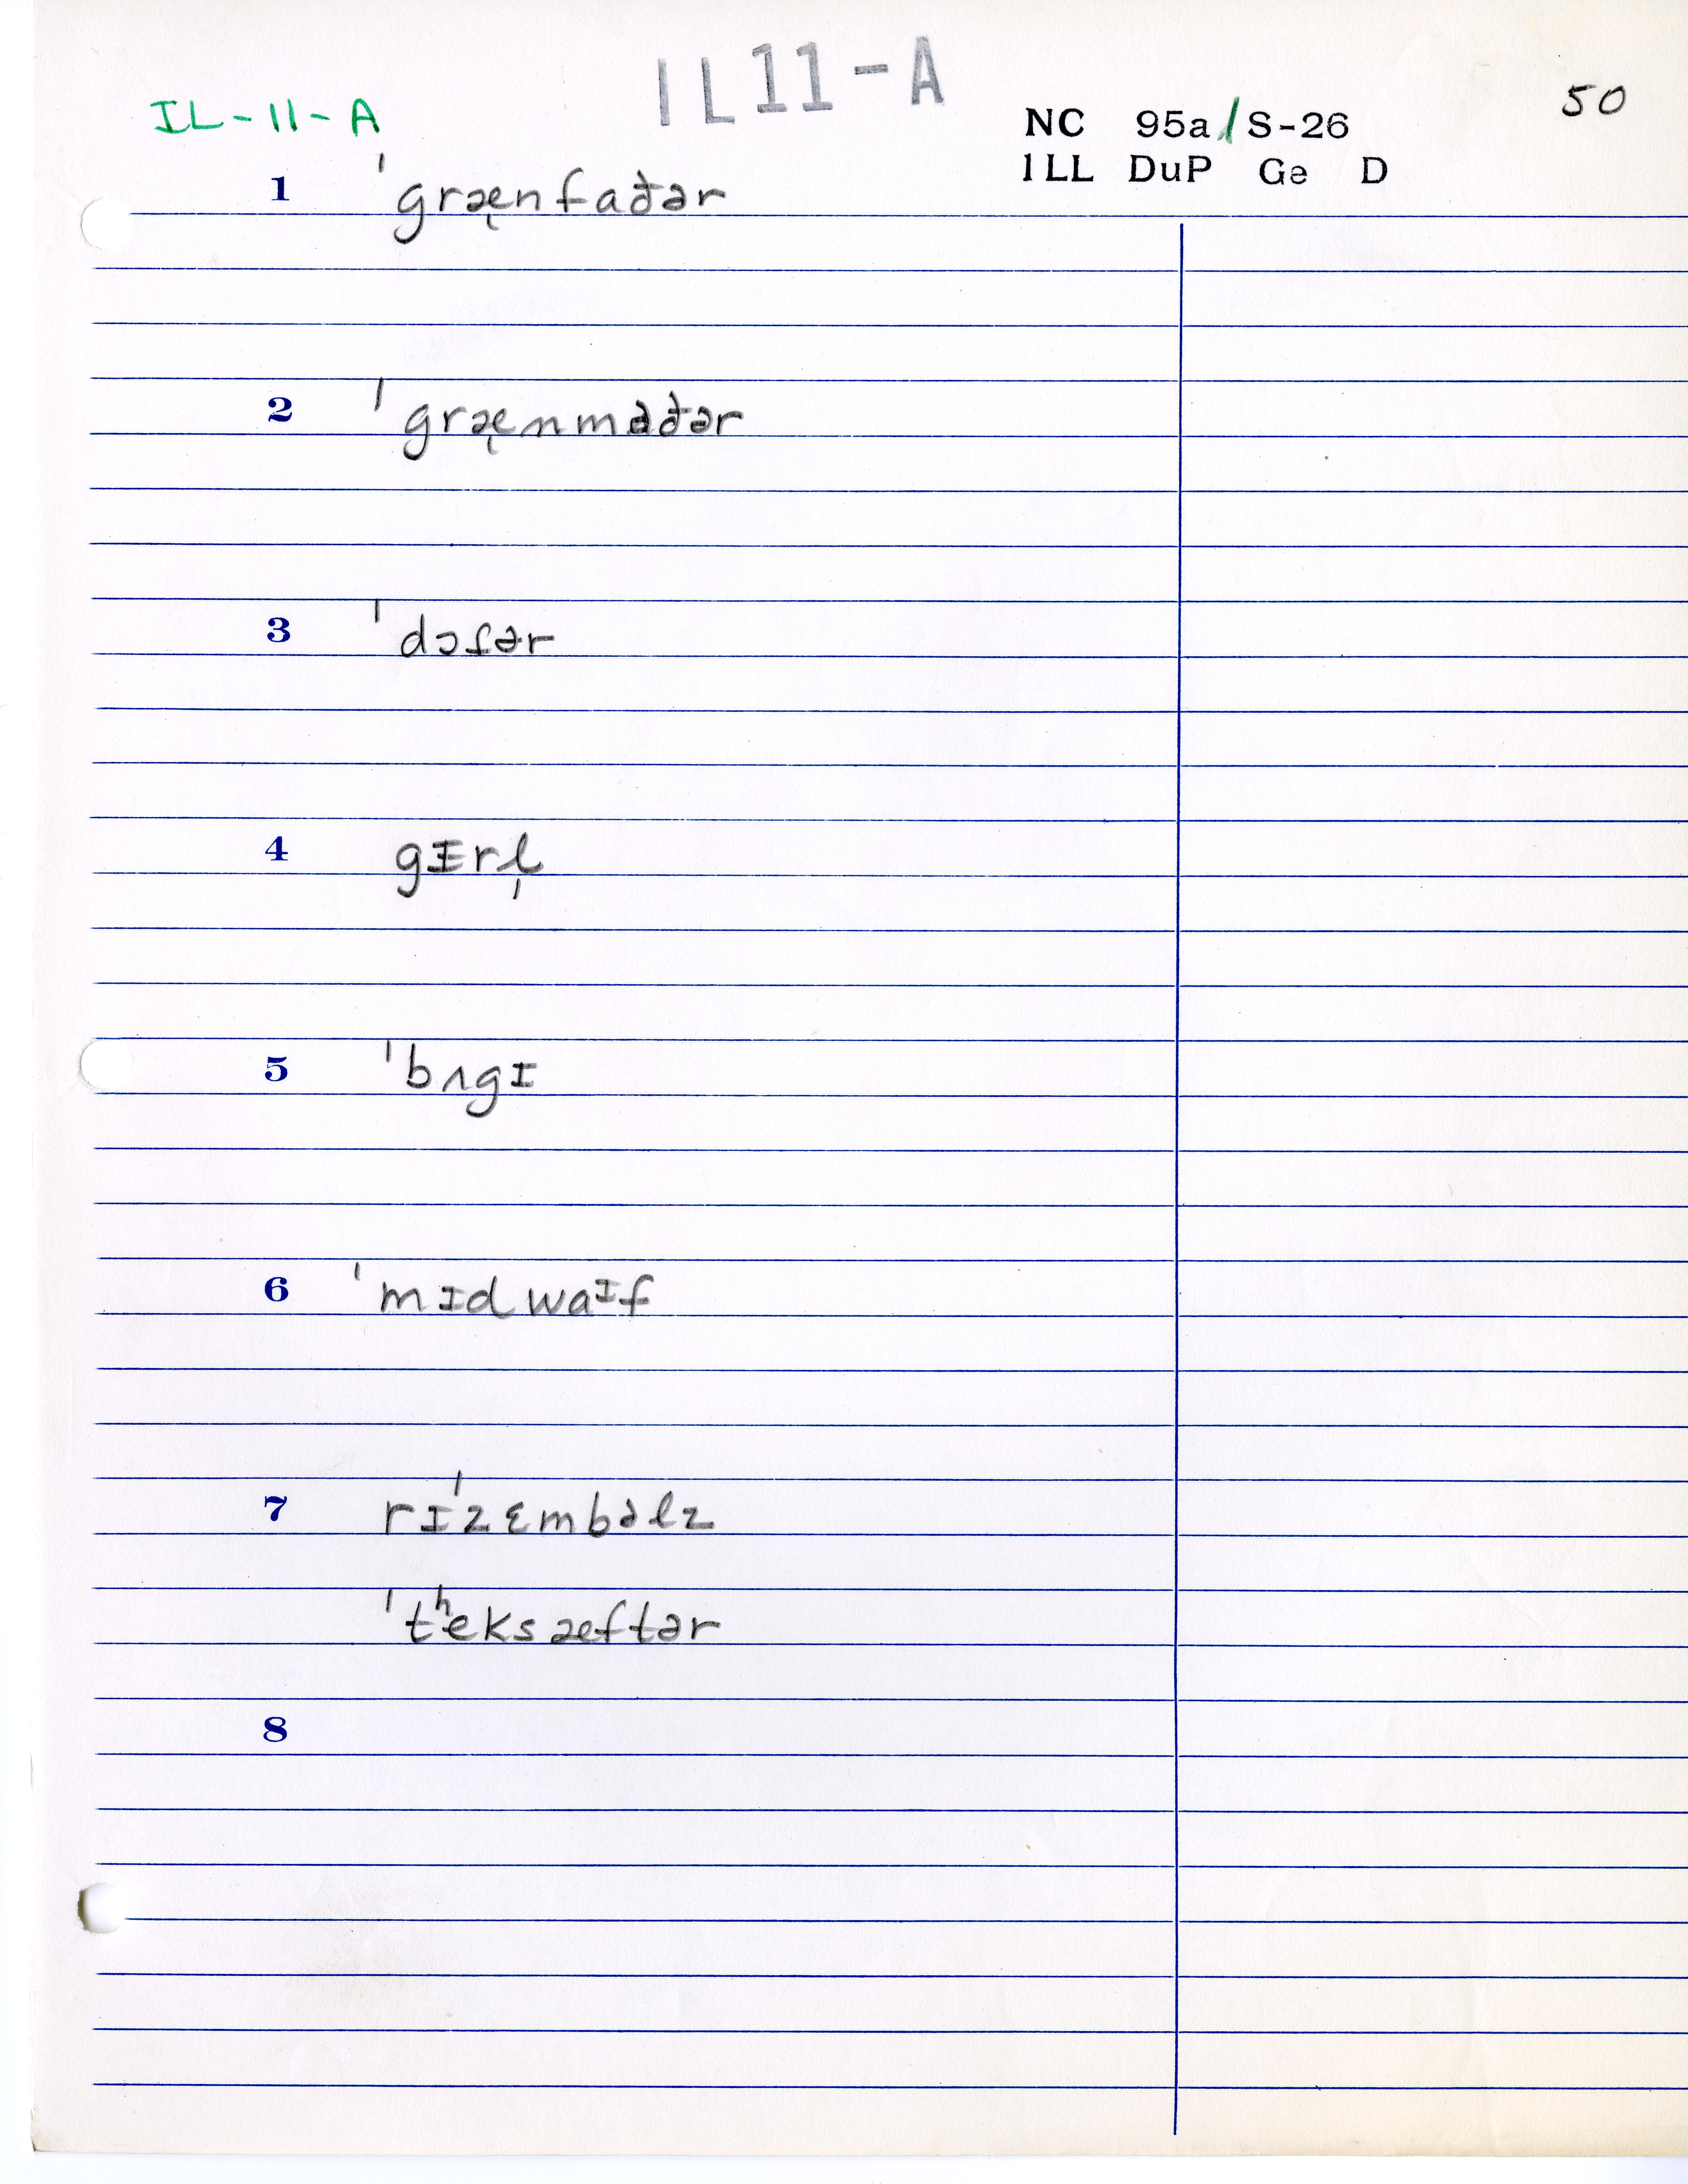 IL11-A
IL-11-A
NC 95a/S-26
50
ILL DuP Ge D
1 ˈgræ̨nfaðər
2 ˈgræ̨nməðər
3 ˈdɔɾər
4 gɪrl̩
5 ˈbʌgɪ
6 ˈmɪdwaᶦf
7 rɪˈzɛmbəlz
ˈtʰeksæftər
8